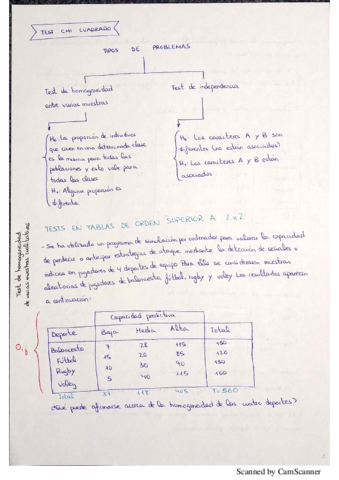 TEST CHI CUADRADO
TIPOS DE PROBLEMAS
Test de homogeneidad
entre varias muestras
Test de independencia
H₀: La proporción de individuos
que caen en una determinada clase
es la misma para todas las
poblaciones y esto vale para
todas las clases
H₁: Alguna proporción es
diferente.
H₀: Los caracteres A y B son
diferentes (no están asociados)
H₁: Los caracteres A y B están
asociados
Test de homogeneidad
de varias muestras cualitativas
TESTS EN TABLAS DE ORDEN SUPERIOR A 2x2
- Se ha utilizado un programa de simulación por ordenador para valorar la capacidad
de predecir o anticipar estrategias de ataque mediante la detección de señales o
indicios en jugadores de 4 deportes de equipo. Para ello se consideraron muestras
aleatorias de jugadores de baloncesto, fútbol, rugby y voley. Los resultados aparecen
a continuación:
Capacidad predictiva
Deporte Baja Media Alta Total
Baloncesto 7 28 115 150
Fútbol 15 20 85 120
Rugby 10 30 90 130
Voley 5 40 115 160
Total 37 118 405 T=560
¿Qué puede afirmarse acerca de la homogeneidad de los cuatro deportes?
Scanned by CamScanner